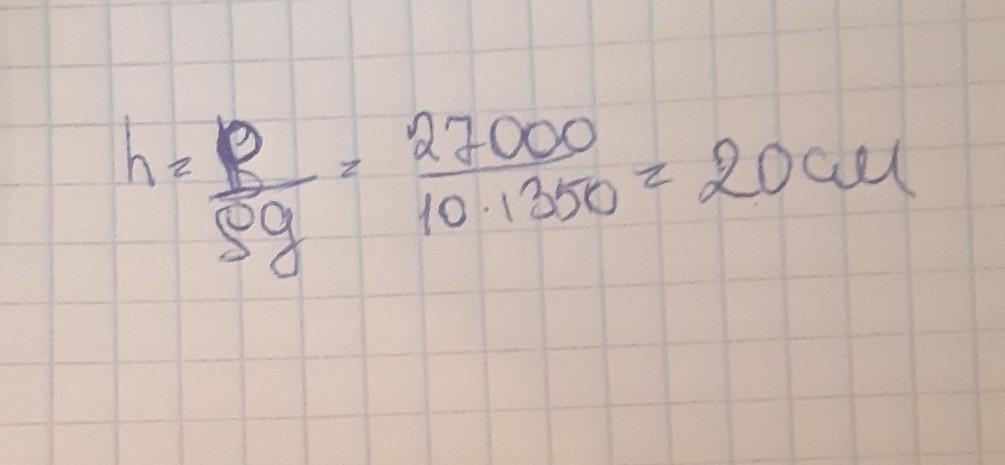 h = p/ρg = 27000/10·1350 = 20см